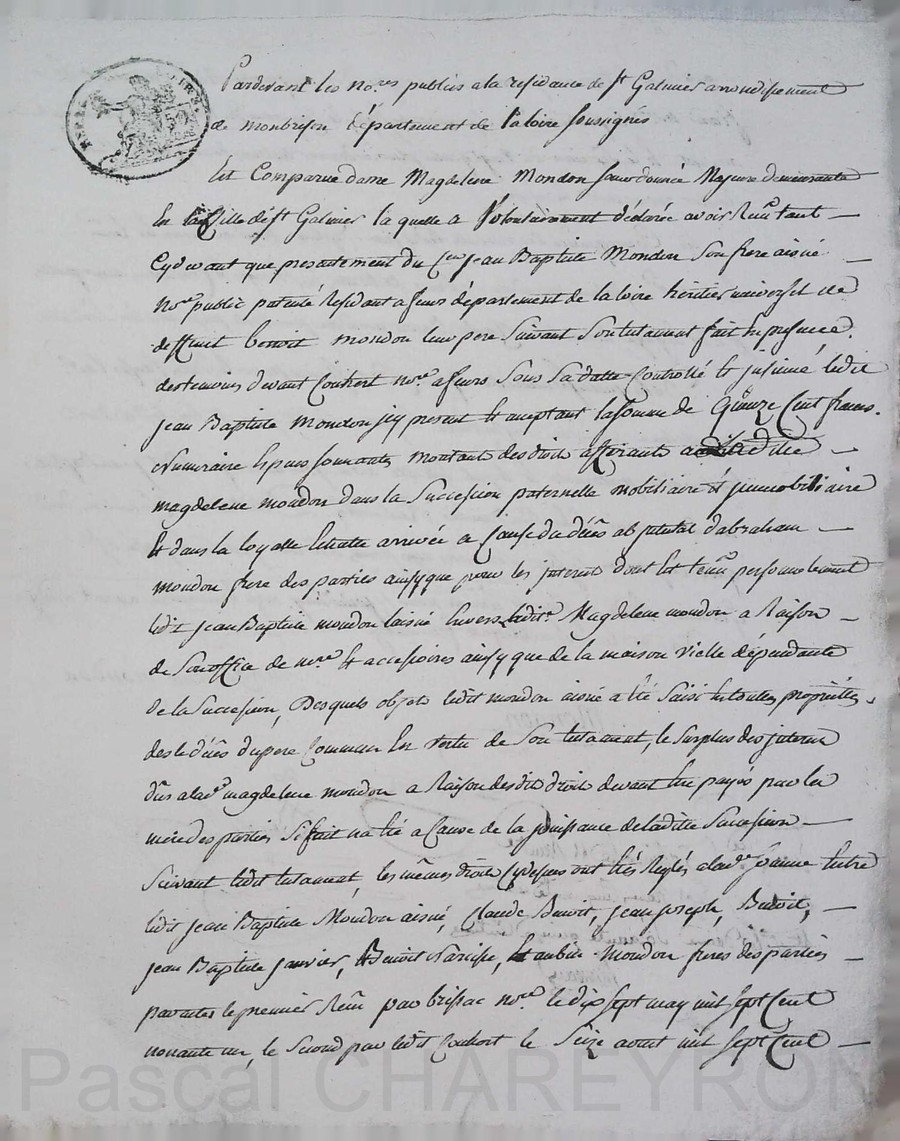 Pardevant les no.res publics a la residance de st Galmier arrondissement
de montbrison département de la loire soussignés
Est Comparue dame Magdeleine Mondon Majeure demeurante
En la Ville de st Galmier la quelle a Volontairement déclaré avoir Reçu tant
Cydevant que presentement du Cen jean Baptiste Mondon son frere aisné
No.re public patenté Residant a feurs département de la loire héritier universel de
deffunt benoit mondon leur pere suivant son testament fait en presence
des temoins devant Couhert no.re a feurs sous sa datte Controllé et insinué, ledit
jean Baptiste mondon icy present et acceptant la somme de Quinze Cent francs
Numeraire Especes sonnantes montant des droits afferants a ladite
magdeleine mondon dans la Succession paternelle mobiliaire et immobiliaire
Et dans la loyalle Echutte arrivée a Cause du décès ab intestat d'abraham
mondon frere des parties ainsy que pour les interets dont Est tenu personnellement
ledit jean Baptiste mondon laisné Envers ladite Magdeleine mondon a Raison
de son office de no.re Et accessoires ainsy que de la maison vielle dépendante
de la succession, Desquels objets ledit mondon aisné a été saisi en toutes propriétés
des le décès du pere Commun En vertu de son testament, le surplus des interets
dus a lade magdeleine mondon a Raison desdits droits devant être payés par la
mere des parties si fait n'a été a Cause de la jouissance de ladite succession
suivant ledit testament, les mêmes droits Cydessus ont étés Reglés a lade jeanne Entre
ledit jean Baptiste Mondon aisné, Claude Benoit, jean joseph, Benoit,
jean Baptiste janvier, Benoit Narcisse, Et aubin Mondon freres des parties
par actes le premier Reçu par brissac no.re le dix sept may mil sept Cent
nonante un, le second par ledit Couhert le seize aout mil sept Cent
Pascal CHAREYRON